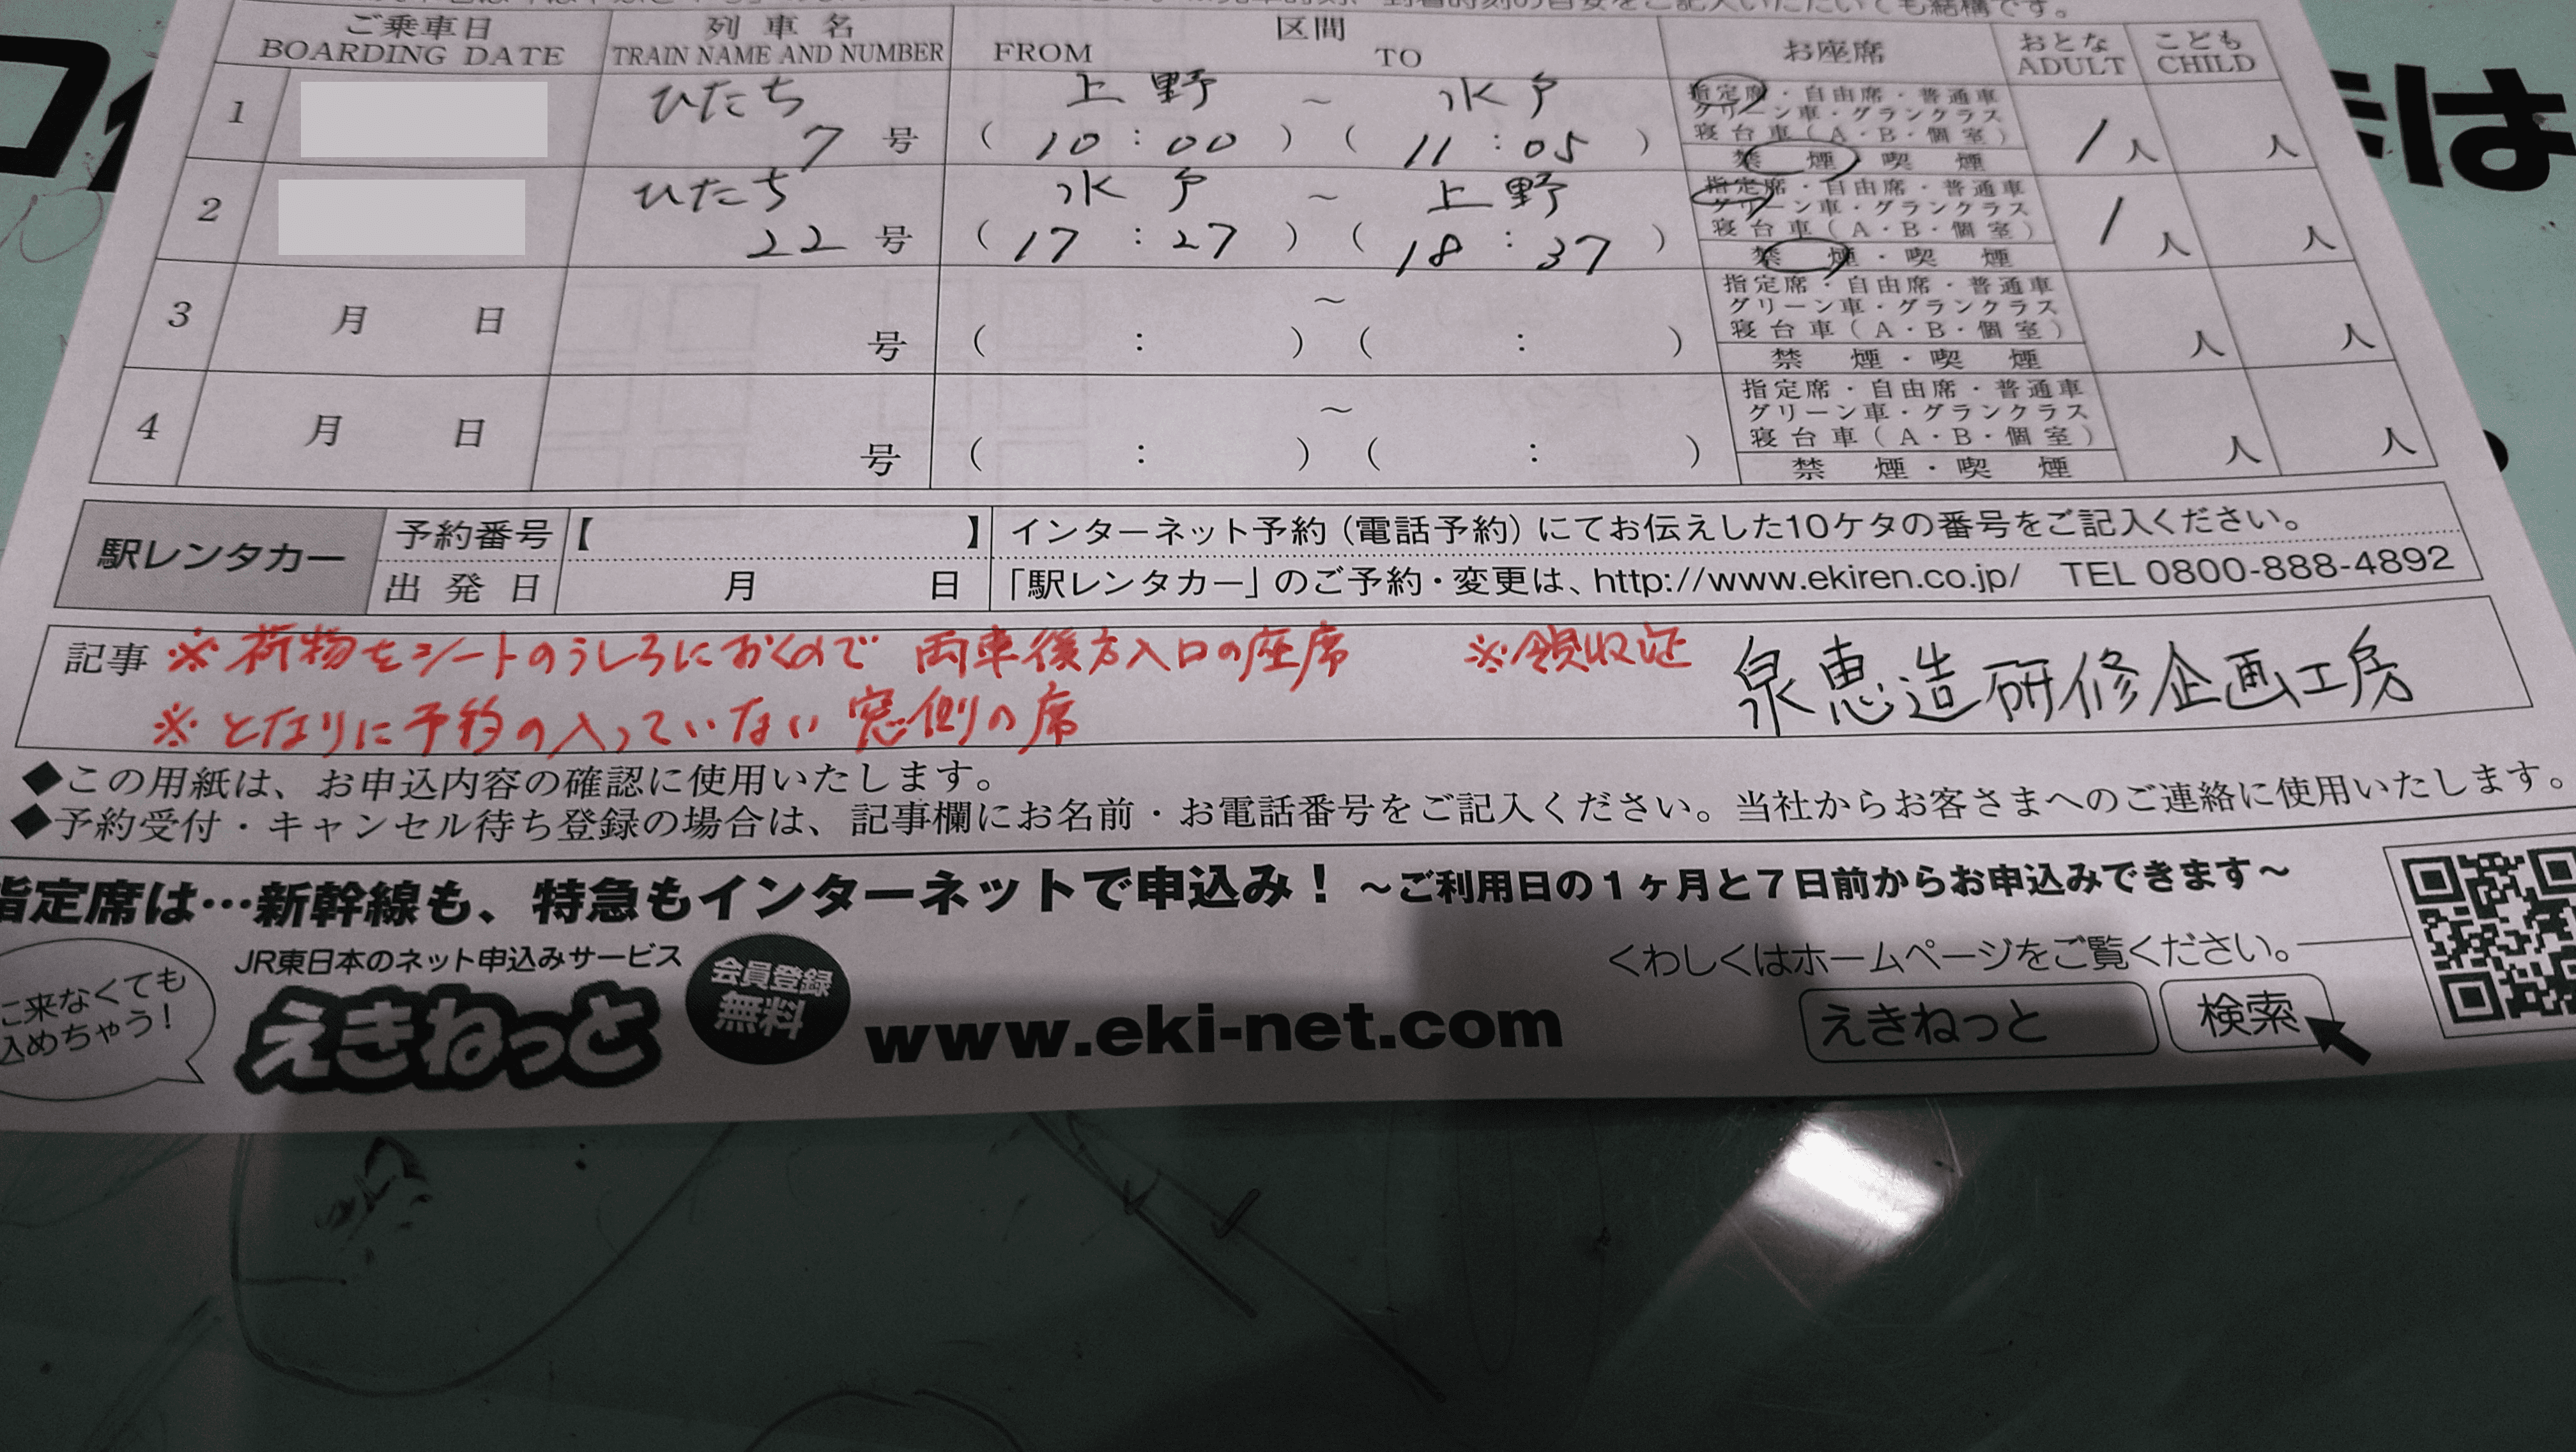 ご乗車日 列車名 区間 お座席 おとな こども
BOARDING DATE TRAIN NAME AND NUMBER FROM TO ADULT CHILD
1 ひたち 7号 上野 ~ 水戸 (10:00) (11:05) 指定席・自由席・普通車 1人 人
グリーン車・グランクラス
寝台車(A・B・個室)
禁煙・喫煙
2 ひたち 22号 水戸 ~ 上野 (17:27) (18:37) 指定席・自由席・普通車 1人 人
グリーン車・グランクラス
寝台車(A・B・個室)
禁煙・喫煙
3 月 日 号 ~ ( : ) ( : ) 指定席・自由席・普通車 人 人
グリーン車・グランクラス
寝台車(A・B・個室)
禁煙・喫煙
4 月 日 号 ~ ( : ) ( : ) 指定席・自由席・普通車 人 人
グリーン車・グランクラス
寝台車(A・B・個室)
禁煙・喫煙
駅レンタカー 予約番号【 】 インターネット予約(電話予約)にてお伝えした10ケタの番号をご記入ください。
出発日 月 日 「駅レンタカー」のご予約・変更は、http://www.ekiren.co.jp/ TEL 0800-888-4892
記事 ※荷物をシートのうしろにおくので 両車後方入口の座席 ※領収証 泉恵造研修企画工房
※となりに予約の入っていない窓側の席
◆この用紙は、お申込内容の確認に使用いたします。
◆予約受付・キャンセル待ち登録の場合は、記事欄にお名前・お電話番号をご記入ください。当社からお客さまへのご連絡に使用いたします。
指定席は…新幹線も、特急もインターネットで申込み! ~ご利用日の1ヶ月と7日前からお申込みできます~
に来なくても
込めちゃう!
JR東日本のネット申込みサービス
えきねっと
会員登録
無料
www.eki-net.com
くわしくはホームページをご覧ください。
えきねっと 検索